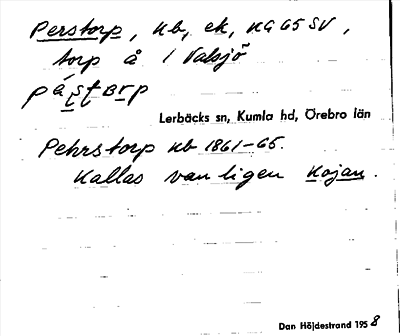 Perstorp, Kb, ek, KG 65 SV,
torp å 1 Valsjö
Lerbäcks sn, Kumla hd, Örebro län
Pehrstorp kb 1861–65.
Kallas vanligen Kojan.
Dan Höjdestrand 1958